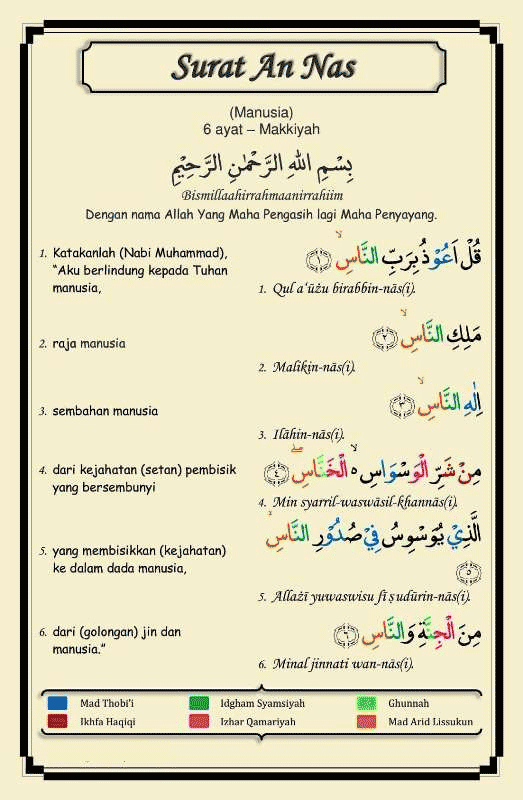 Surat An Nas
(Manusia)
6 ayat – Makkiyah
بِسْمِ اللهِ الرَّحْمٰنِ الرَّحِيْمِ
Bismillaahirrahmaanirrahiim
Dengan nama Allah Yang Maha Pengasih lagi Maha Penyayang.
1. Katakanlah (Nabi Muhammad),
“Aku berlindung kepada Tuhan
manusia,
قُلْ اَعُوْذُ بِرَبِّ النَّاسِۙ ﴿١﴾
1. Qul a‘ūżu birabbin-nās(i).
2. raja manusia
مَلِكِ النَّاسِۙ ﴿٢﴾
2. Malikin-nās(i).
3. sembahan manusia
اِلٰهِ النَّاسِۙ ﴿٣﴾
3. Ilāhin-nās(i).
4. dari kejahatan (setan) pembisik
yang bersembunyi
مِنْ شَرِّ الْوَسْوَاسِ ەۙ الْخَنَّاسِۖ ﴿٤﴾
4. Min syarril-waswāsil-khannās(i).
5. yang membisikkan (kejahatan)
ke dalam dada manusia,
الَّذِيْ يُوَسْوِسُ فِيْ صُدُوْرِ النَّاسِۙ
﴿٥﴾
5. Allażī yuwaswisu fī ṣudūrin-nās(i).
6. dari (golongan) jin dan
manusia.”
مِنَ الْجِنَّةِ وَالنَّاسِ ﴿٦﴾
6. Minal jinnati wan-nās(i).
Mad Thobi’i Idgham Syamsiyah Ghunnah
Ikhfa Haqiqi Izhar Qamariyah Mad Arid Lissukun